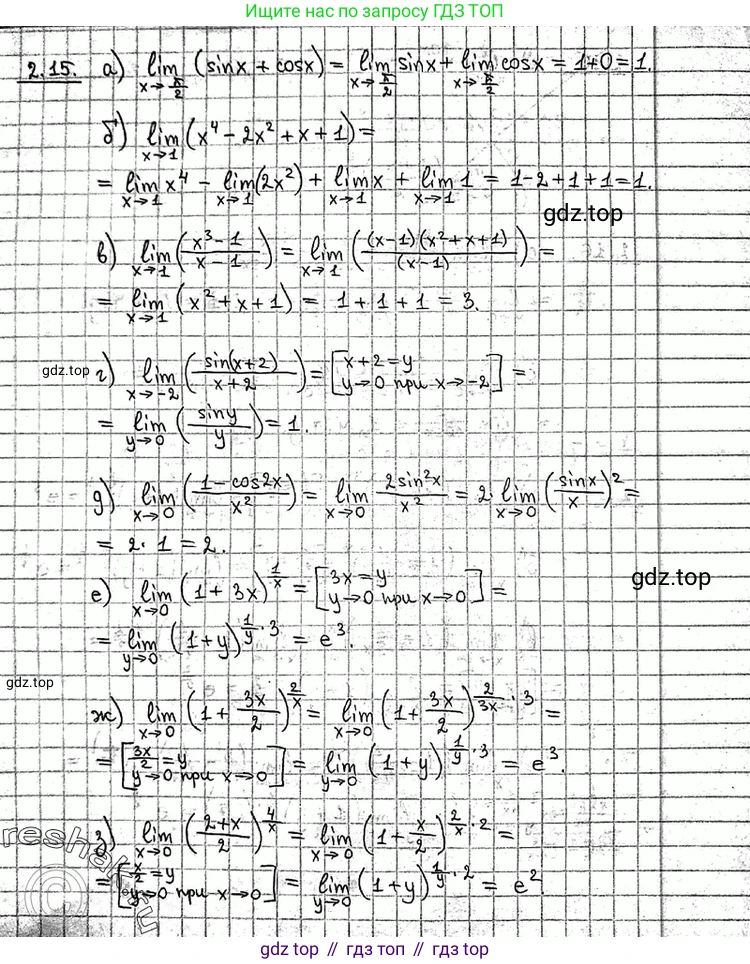 Ищите нас по запросу ГДЗ ТОП
2.15. а) lim x→π/2 (sinx + cosx) = lim x→π/2 sinx + lim x→π/2 cosx = 1+0 = 1.
б) lim x→1 (x⁴ − 2x² + x + 1) =
= lim x→1 x⁴ − lim x→1 (2x²) + lim x→1 x + lim x→1 1 = 1−2+1+1=1.
gdz.top
в) lim x→1 ((x³−1)/(x−1)) = lim x→1 ((x−1)(x²+x+1)/(x−1)) =
= lim x→1 (x²+x+1) = 1+1+1 = 3.
gdz.top
г) lim x→−2 (sin(x+2)/(x+2)) = [x+2=y y→0 при x→−2] =
= lim y→0 (siny/y) = 1.
д) lim x→0 ((1−cos2x)/x²) = lim x→0 2sin²x/x² = 2·lim x→0 (sinx/x)² =
= 2·1 = 2.
е) lim x→0 (1+3x)^(1/x) = [3x=y y→0 при x→0] =
gdz.top
= lim y→0 (1+y)^(1/y·3) = e³.
gdz.top
ж) lim x→0 (1+3x/2)^(2/x) = lim x→0 (1+3x/2)^(2/3x·3) =
= [3x/2=y y→0 при x→0] = lim y→0 (1+y)^(1/y·3) = e³.
з) lim x→0 ((2+x)/2)^(4/x) = lim x→0 (1+x/2)^(2/x·2) =
= [x/2=y y→0 при x→0] = lim y→0 (1+y)^(1/y·2) = e².
reshak.ru
gdz.top // гдз.топ // gdz.top // гдз.топ